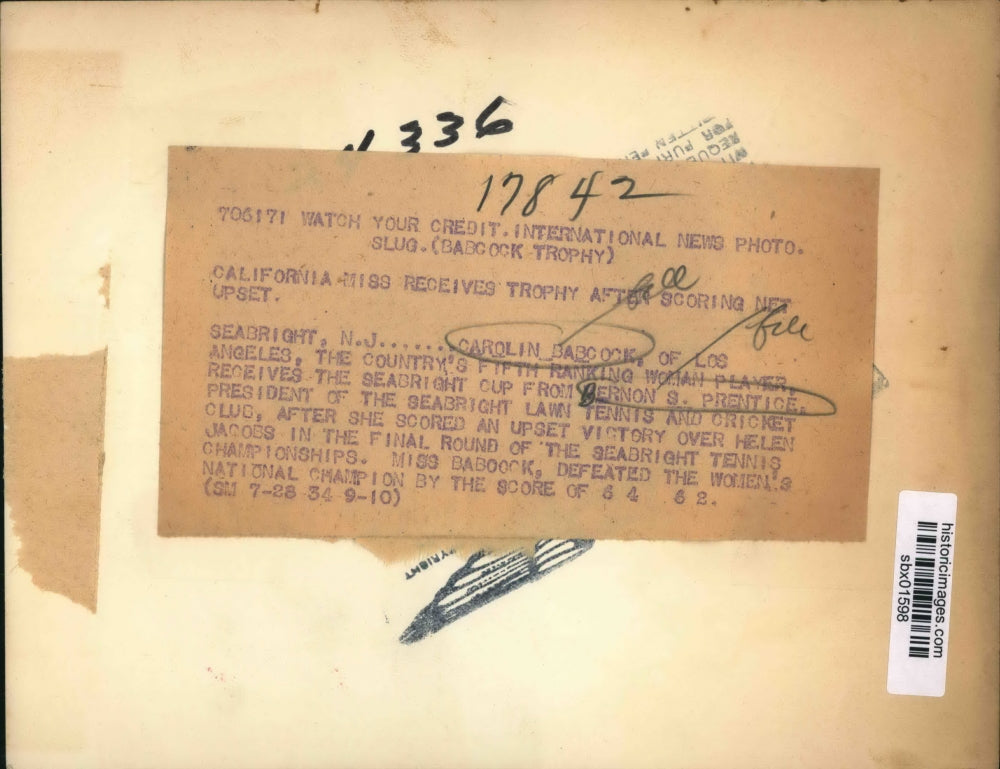 336
17842
706171 WATCH YOUR CREDIT.INTERNATIONAL NEWS PHOTO.
SLUG.(BABCOCK TROPHY)
CALIFORNIA MISS RECEIVES TROPHY AFTER SCORING NET
UPSET.
SEABRIGHT, N.J.......CAROLIN BABCOCK, OF LOS
ANGELES, THE COUNTRY'S FIFTH RANKING WOMAN PLAYER,
RECEIVES THE SEABRIGHT CUP FROM BERNON S. PRENTICE,
PRESIDENT OF THE SEABRIGHT LAWN TENNIS AND CRICKET
CLUB, AFTER SHE SCORED AN UPSET VICTORY OVER HELEN
JACOBS IN THE FINAL ROUND OF THE SEABRIGHT TENNIS
CHAMPIONSHIPS. MISS BABCOCK, DEFEATED THE WOMEN'S
NATIONAL CHAMPION BY THE SCORE OF 6 4 6 2.
(SM 7-28 34 9-10)
file
historicimages.com
sbx01598